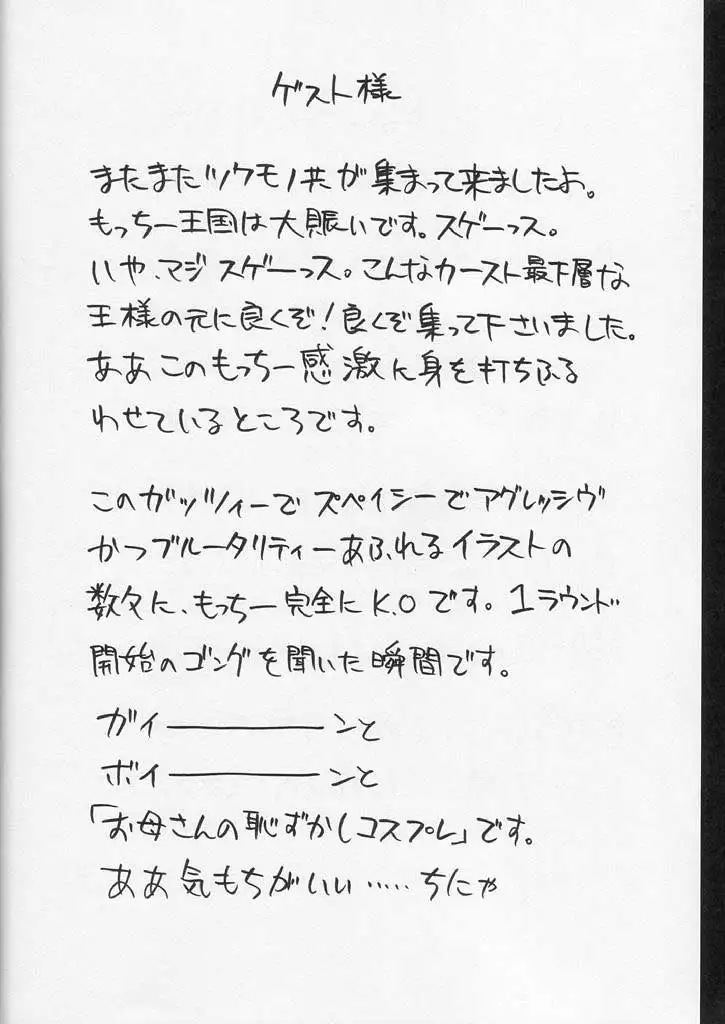 ゲスト様
またまたツワモノ共が集まって来ましたよ。
もっちー王国は大賑いです。スゲーっス。
いや、マジスゲーっス。こんなカースト最下層な
王様の元に良くぞ!良くぞ集って下さいました。
ああこのもっちー感激に身を打ちふる
わせているところです。
このガッツィーでスペイシーでアグレッシヴ
かつブルータリティーあふれるイラストの
数々に、もっちー完全にK.Oです。1ラウンド
開始のゴングを聞いた瞬間です。
ガイ――――ンと
ボイ――――ンと
「お母さんの恥ずかしコスプレ」です。
ああ気もちがいい・・・・・ちにゃ